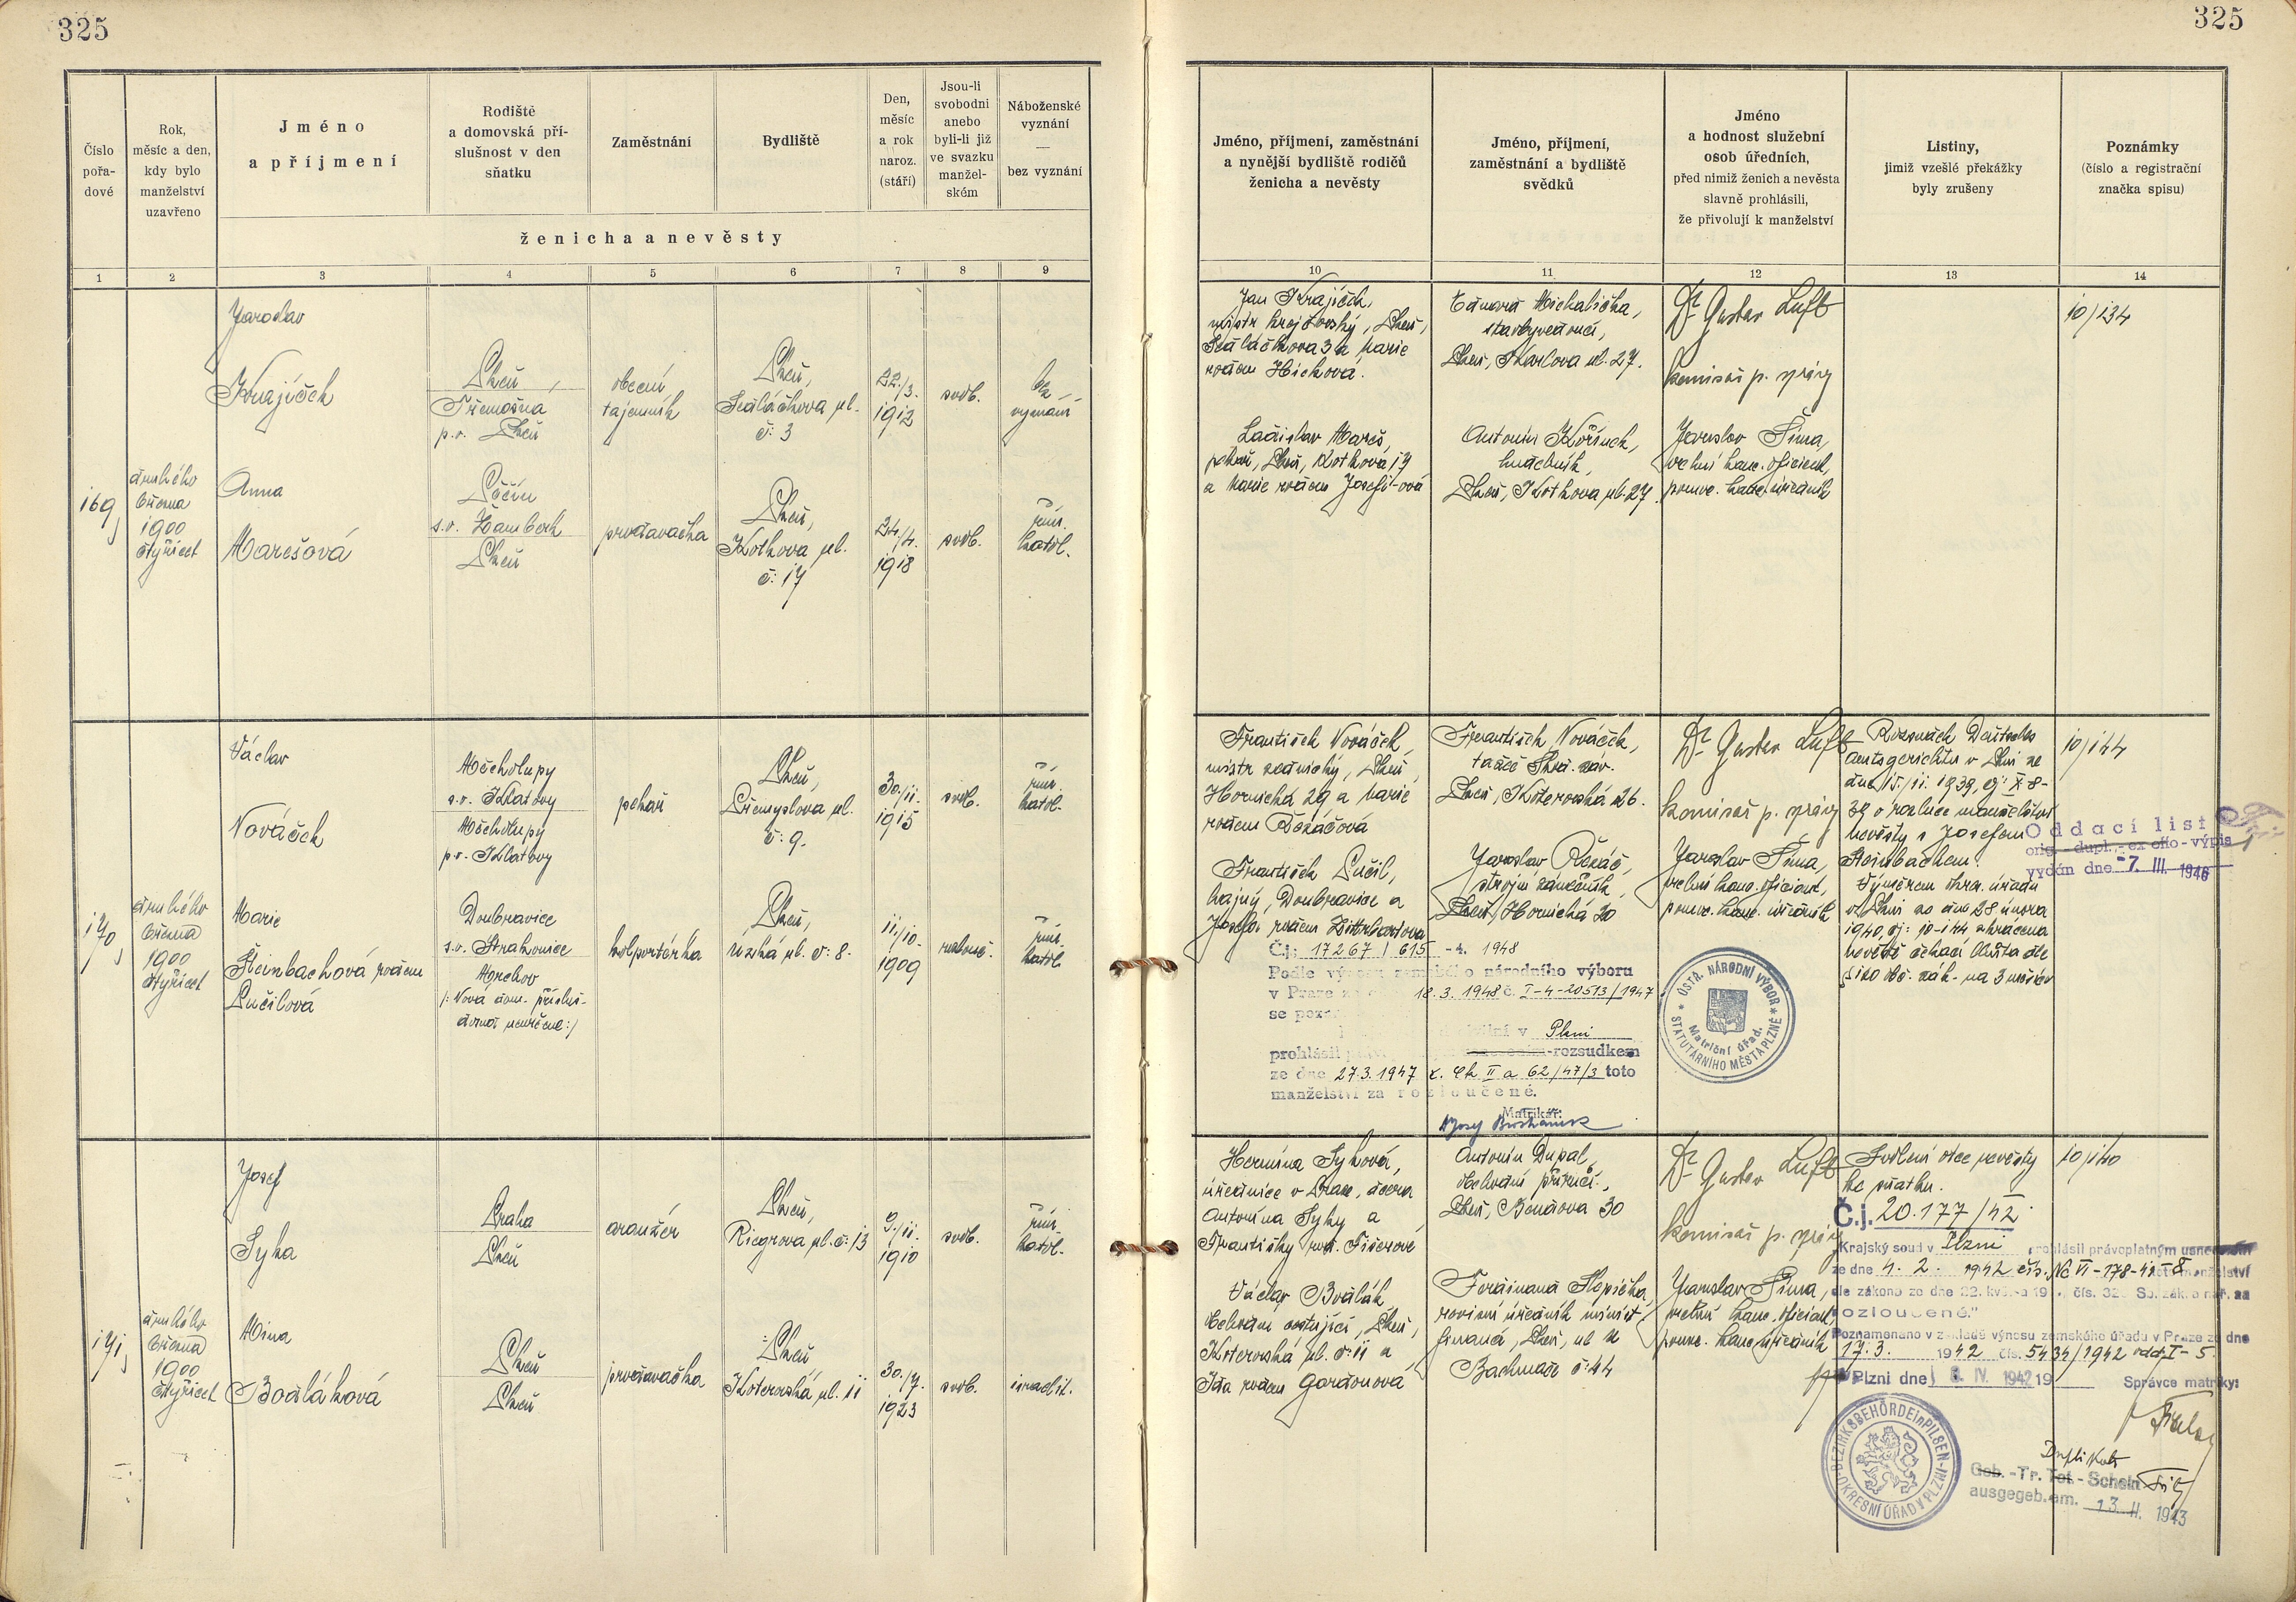 325
325
Číslo
pořa-
dové
Rok,
měsíc a den,
kdy bylo
manželství
uzavřeno
Jméno
a příjmení
Rodiště
a domovská pří-
slušnost v den
sňatku
Zaměstnání
Bydliště
Den,
měsíc
a rok
naroz.
(stáří)
Jsou-li
svobodni
anebo
byli-li již
ve svazku
manžel-
ském
Náboženské
vyznání
—
bez vyznání
ženicha a nevěsty
Jméno, příjmení, zaměstnání
a nynější bydliště rodičů
ženicha a nevěsty
Jméno, příjmení,
zaměstnání a bydliště
svědků
Jméno
a hodnost služební
osob úředních,
před nimiž ženich a nevěsta
slavně prohlásili,
že přivolují k manželství
Listiny,
jimiž vzešlé překážky
byly zrušeny
Poznámky
(číslo a registrační
značka spisu)
1 2 3 4 5 6 7 8 9 10 11 12 13 14
169
druhého
března
1900
čtyřicet
Jaroslav
Krajíček
Plzeň,
Třemošná
p.o. Plzeň
obecní
tajemník
Plzeň,
Sedláčkova ul.
č: 3
22./3.
1912
svob.
bez
vyznání
Anna
Marešová
s.o. Žamberk
Plzeň
prodavačka
Plzeň,
Kotkova ul.
č: 17
24./4.
1918
svob.
řím.
katol.
Jan Krajíček,
mistr krejčovský, Plzeň,
Sedláčkova 3 a Marie
rodem Hicková.
Ladislav Mareš,
pekař, Plzeň, Kotkova 17
a Marie rodem Josefi-ová
Eduard Michalička,
stavbyvedoucí,
Plzeň, Karlova ul. 27.
Antonín Kořínek,
hudebník,
Plzeň, Kotkova ul. 27.
Dr Gustav Luft
komisař p. správy
Jaroslav Šíma,
vrchní kanc. oficiant,
pomoc. kanc. úředník
10/134
170
druhého
března
1900
čtyřicet
Václav
Nováček
Měcholupy
s.o. Klatovy
Měcholupy
p.o. Klatovy
pekař
Plzeň,
Přemyslova ul.
č: 9.
30./11.
1915
svob.
řím.
katol.
Marie
Steinbachová rodem
Pučilová
Doubravice
s.o. Strakonice
Mrchov
(: Nová dom. přísluš-
dosud neurčena :)
kolportérka
Plzeň,
Úzká ul. č: 8.
11./10.
1909
rozlouč.
řím.
katol.
František Nováček,
mistr zednický, Plzeň,
Hornická 29 a Marie
rodem Řezáčová
František Pučil,
hajný, Doubravice a
Josefa rodem
František Nováček,
Plzeň, Koterovská 26.
Jaroslav Řezáč,
strojní zámečník,
Plzeň, Hornická 20
Dr Gustav Luft
komisař p. správy
Jaroslav Šíma,
vrchní kanc. oficiant,
pomoc. kanc. úředník
Rozsudek Deutsches
Amtsgerichtu v Plzni ze
dne 15./11. 1939, čj: X-8-
39 o rozluce manželství
nevěsty s Josefem
Steinbachem.
Výměrem okres. úřadu
v Plzni ze dne 28. února
1940, čj: 10-144 zkrácena
nevěstě čekací lhůta dle
§ 120 obč. zák. na 3 měsíce
10/144
Oddací list
orig.-dupl.-ex offo-výpis
vydán dne -7. III. 1946
Č.j.: 17267 / 615 -4. 1948
Podle výnosu zemského národního výboru
v Praze ze dne 18.3. 1948 č. I-4-20513/1947
se pozn
v Plzni
prohlásil rozsudkem
ze dne 27.3.1947 č. Ck II a 62/47/3 toto
manželství za rozloučené.
Matrikář:
ÚSTŘ. NÁRODNÍ VÝBOR
STATUTÁRNÍHO MĚSTA PLZNĚ
Matriční úřad.
171
druhého
března
1900
čtyřicet
Josef
Syka
Praha
Plzeň
aranžér
Plzeň,
Riegrova ul. č: 13
9./11.
1910
svob.
řím.
katol.
Mina
Bodláková
Plzeň
Plzeň
prodavačka
Plzeň,
Koterovská ul. 11
30./7.
1923
svob.
israelit.
Hermina Syková,
úřednice v Praze, dcera
Antonína Syky a
Františky rod. Fišerové
Václav Bodlák
obchodní cestující, Plzeň,
Koterovská ul. č: 11 a
Ida rodem Gordonová
Antonín Dupal,
obchodní příručí,
Plzeň, Bendova 30
Ferdinand Kopička,
financí, Plzeň, ul. U
Bachmače č: 44
Dr Gustav Luft
komisař p. správy
Jaroslav Šíma,
vrchní kanc. oficiant,
pomoc. kanc. úředník
Svolení otce nevěsty
ke sňatku.
10/140
Č.j. 20.177/42
Krajský soud v Plzni prohlásil právoplatným usnesením
ze dne 4. 2. 1942 čís. Nc VI-178-42-8 manželství
dle zákona ze dne 22. kvě. 19 čís. 320 Sb. zák. a nař. za
rozloučené."
Poznamenáno v základě výnosu zemského úřadu v Praze ze dne
17. 3. 1942 čís. 5434/1942 odd. I-5
V Plzni dne 8. IV. 1942 19 Správce matriky:
BEZIRKSBEHÖRDE in PILSEN
OKRESNÍ ÚŘAD V PLZNI
Duplikat
Geb.-Tr. Tot-Schein
ausgegeb. am. 13. II. 1943